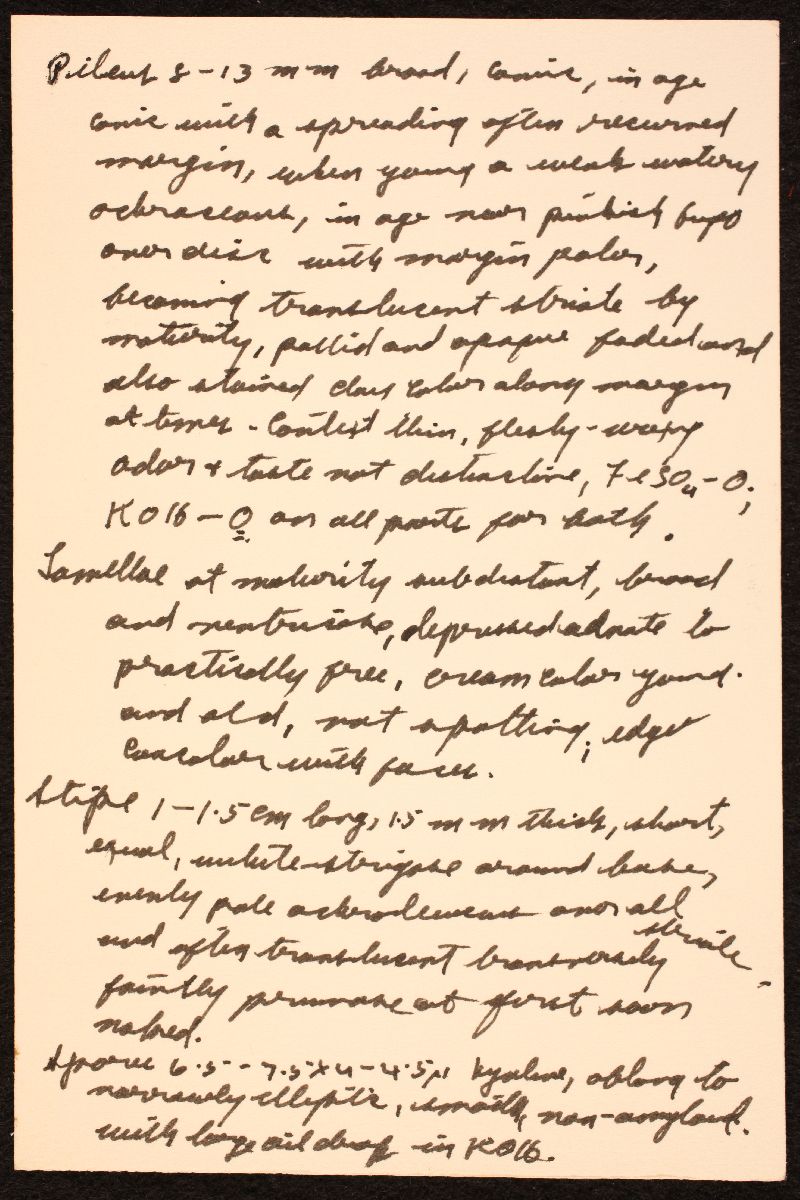 Pileus 8-13 mm broad, conic, in age
conic with a spreading often recurved
margin, when young a weak watery
ochraceous, in age near pinkish buff
over disc with margin paler,
becoming translucent striate by
maturity, pallid and opaque faded and
also stained clay color along margin
at times - Context thin, fleshy-waxy
odor + taste not distinctive, FeSO4 - O;
KOH - O on all parts for both.
Lamellae at maturity subdistant, broad
and ventricose, depressed adnate to
practically free, cream color young
and old, not spotting; edges
concolor with faces.
Stipe 1-1.5 cm long, 1.5 mm thick, short,
equal, white-strigose around base,
evenly pale ochraceous over all
and often translucent transversely striate -
faintly pruinose at first soon
naked.
Spores 6.5 - 7.5 x 4 - 4.5 µ hyaline, oblong to
narrowly elliptic, smooth, non-amyloid.
with large oil drop in KOH.